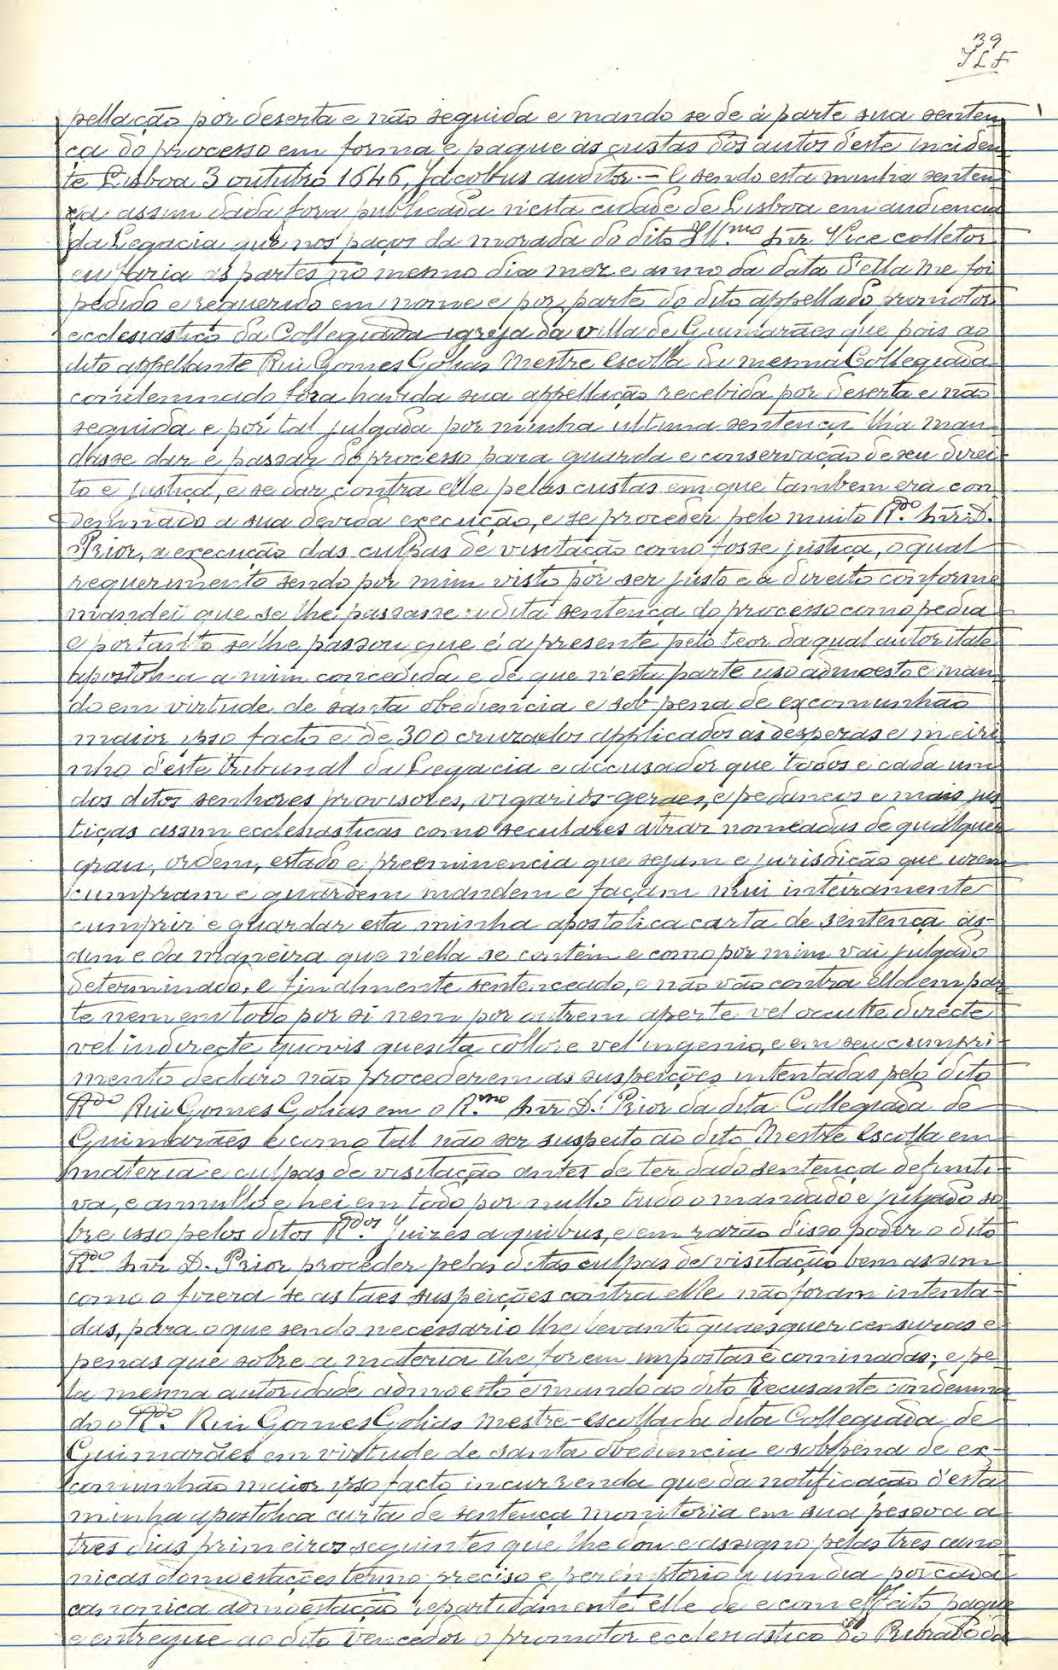 39
JLF
pellação por deserta e não seguida e mando se de á parte sua senten-
ça do processo em forma e pague as custas dos autos d'este inciden-
te Lisboa 3 outubro 1646, Jacobus auditor.— E sendo esta minha senten-
ça assim dada fora publicada n'esta cidade de Lisboa em audiencia
da Legacia que nos paços da morada do dito Ill.mo Snr Vice colletor
eu faria ás partes no mesmo dia mez e anno da data d'ella me foi
pedido e requerido em nome e por parte do dito appellado promotor
ecclesiastico da Collegiada igreja da villa de Guimarães que pois ao
dito appellante Rui Gomes Golias Mestre escolla da mesma Collegiada
condemnado fora havida sua appellação recebida por deserta e não
seguida e por tal julgada por minha ultima sentença lh'a man-
dasse dar e passar do processo para guarda e conservação de seu direi-
to e justiça, e se dar contra elle pelas custas em que tambem era con-
demnado a sua devida execução, e se proceder pelo muito R.do Snr D.
Prior, a execução das culpas de visitação como fosse justiça, o qual
requerimento sendo por mim visto por ser justo e a direito conforme
mandei que se lhe passasse a dita sentença do processo como pedia
e portanto se lhe passou que é a presente pelo teor da qual autoritate
apostolica a mim concedida e de que n'esta parte uso admoesto e man-
do em virtude de santa obediencia e sob pena de excomunhão
maior ipso facto e de 300 cruzados applicados ás despezas e meiri-
nho d'este tribunal da Legacia e accusador que todos e cada um
dos ditos senhores provisores, vigarios-geraes, e pedaneos e mais jus-
tiças assim ecclesiasticas como seculares atraz nomeadas de qualquer
grau, ordem, estado e preeminencia que sejam e jurisdição que uzem
cumpram e guardem mandem e façam mui inteiramente
cumprir e guardar esta minha apostolica carta de sentença as-
sim e da maneira que n'ella se contém e como por mim vai julgado
determinado, e finalmente sentenceado, e não vão contra ella em par-
te nem em todo por si nem por outrem aperte vel occulte directe
vel indirecte quovis quesita collore vel ingenio, e em seu cumpri-
mento declaro não procederem as suspeições intentadas pelo dito
R.do Rui Gomes Golias em o R.mo Snr D. Prior da dita Collegiada de
Guimarães e como tal não ser suspeito ao dito Mestre Escolla em
materia e culpas de visitação antes de ter dado sentença defeniti-
va, e annullo e hei em todo por nullo tudo o mandado e julgado so-
bre isso pelos ditos R.dos Juizes a quibus, e em razão disso poder o dito
R.do Snr D. Prior proceder pelas ditas culpas de visitação bem assim
como o fizera se as taes suspeições contra elle não foram intenta-
das, para o que sendo necessario lhe levanto quaesquer censuras e
penas que sobre a materia lhe forem impostas e cominadas; e pe-
la mesma autoridade admoesto e mando ao dito recusante condemna-
do o R.do Rui Gomes Golias mestre-escolla da dita Collegiada de
Guimarães em virtude de santa obediencia e sob pena de ex-
comunhão maior ipso facto incurrenda que da notificação d'esta
minha apostolica carta de sentença monitoria em sua pessoa a
tres dias primeiros seguintes que lhe dou e assigno pelas tres cano-
nicas admoestações termo preciso e perémptorio a um dia por cada
canonica admoestação repartidamente elle de e com effeito pague
e entregue ao dito vencedor o promotor ecclesiastico do